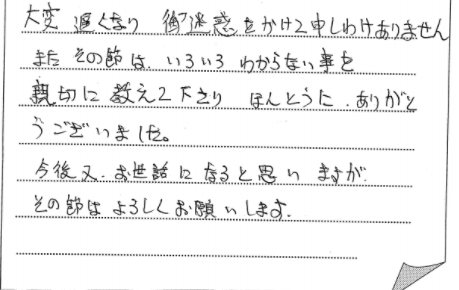 大変 遅くなり 御迷惑をかけて申しわけありません
また その節は いろいろ わからない事を
親切に 教えて下さり ほんとうに、ありがと
うございました。
今後又、お世話になると思いますが
その節は よろしくお願いします。